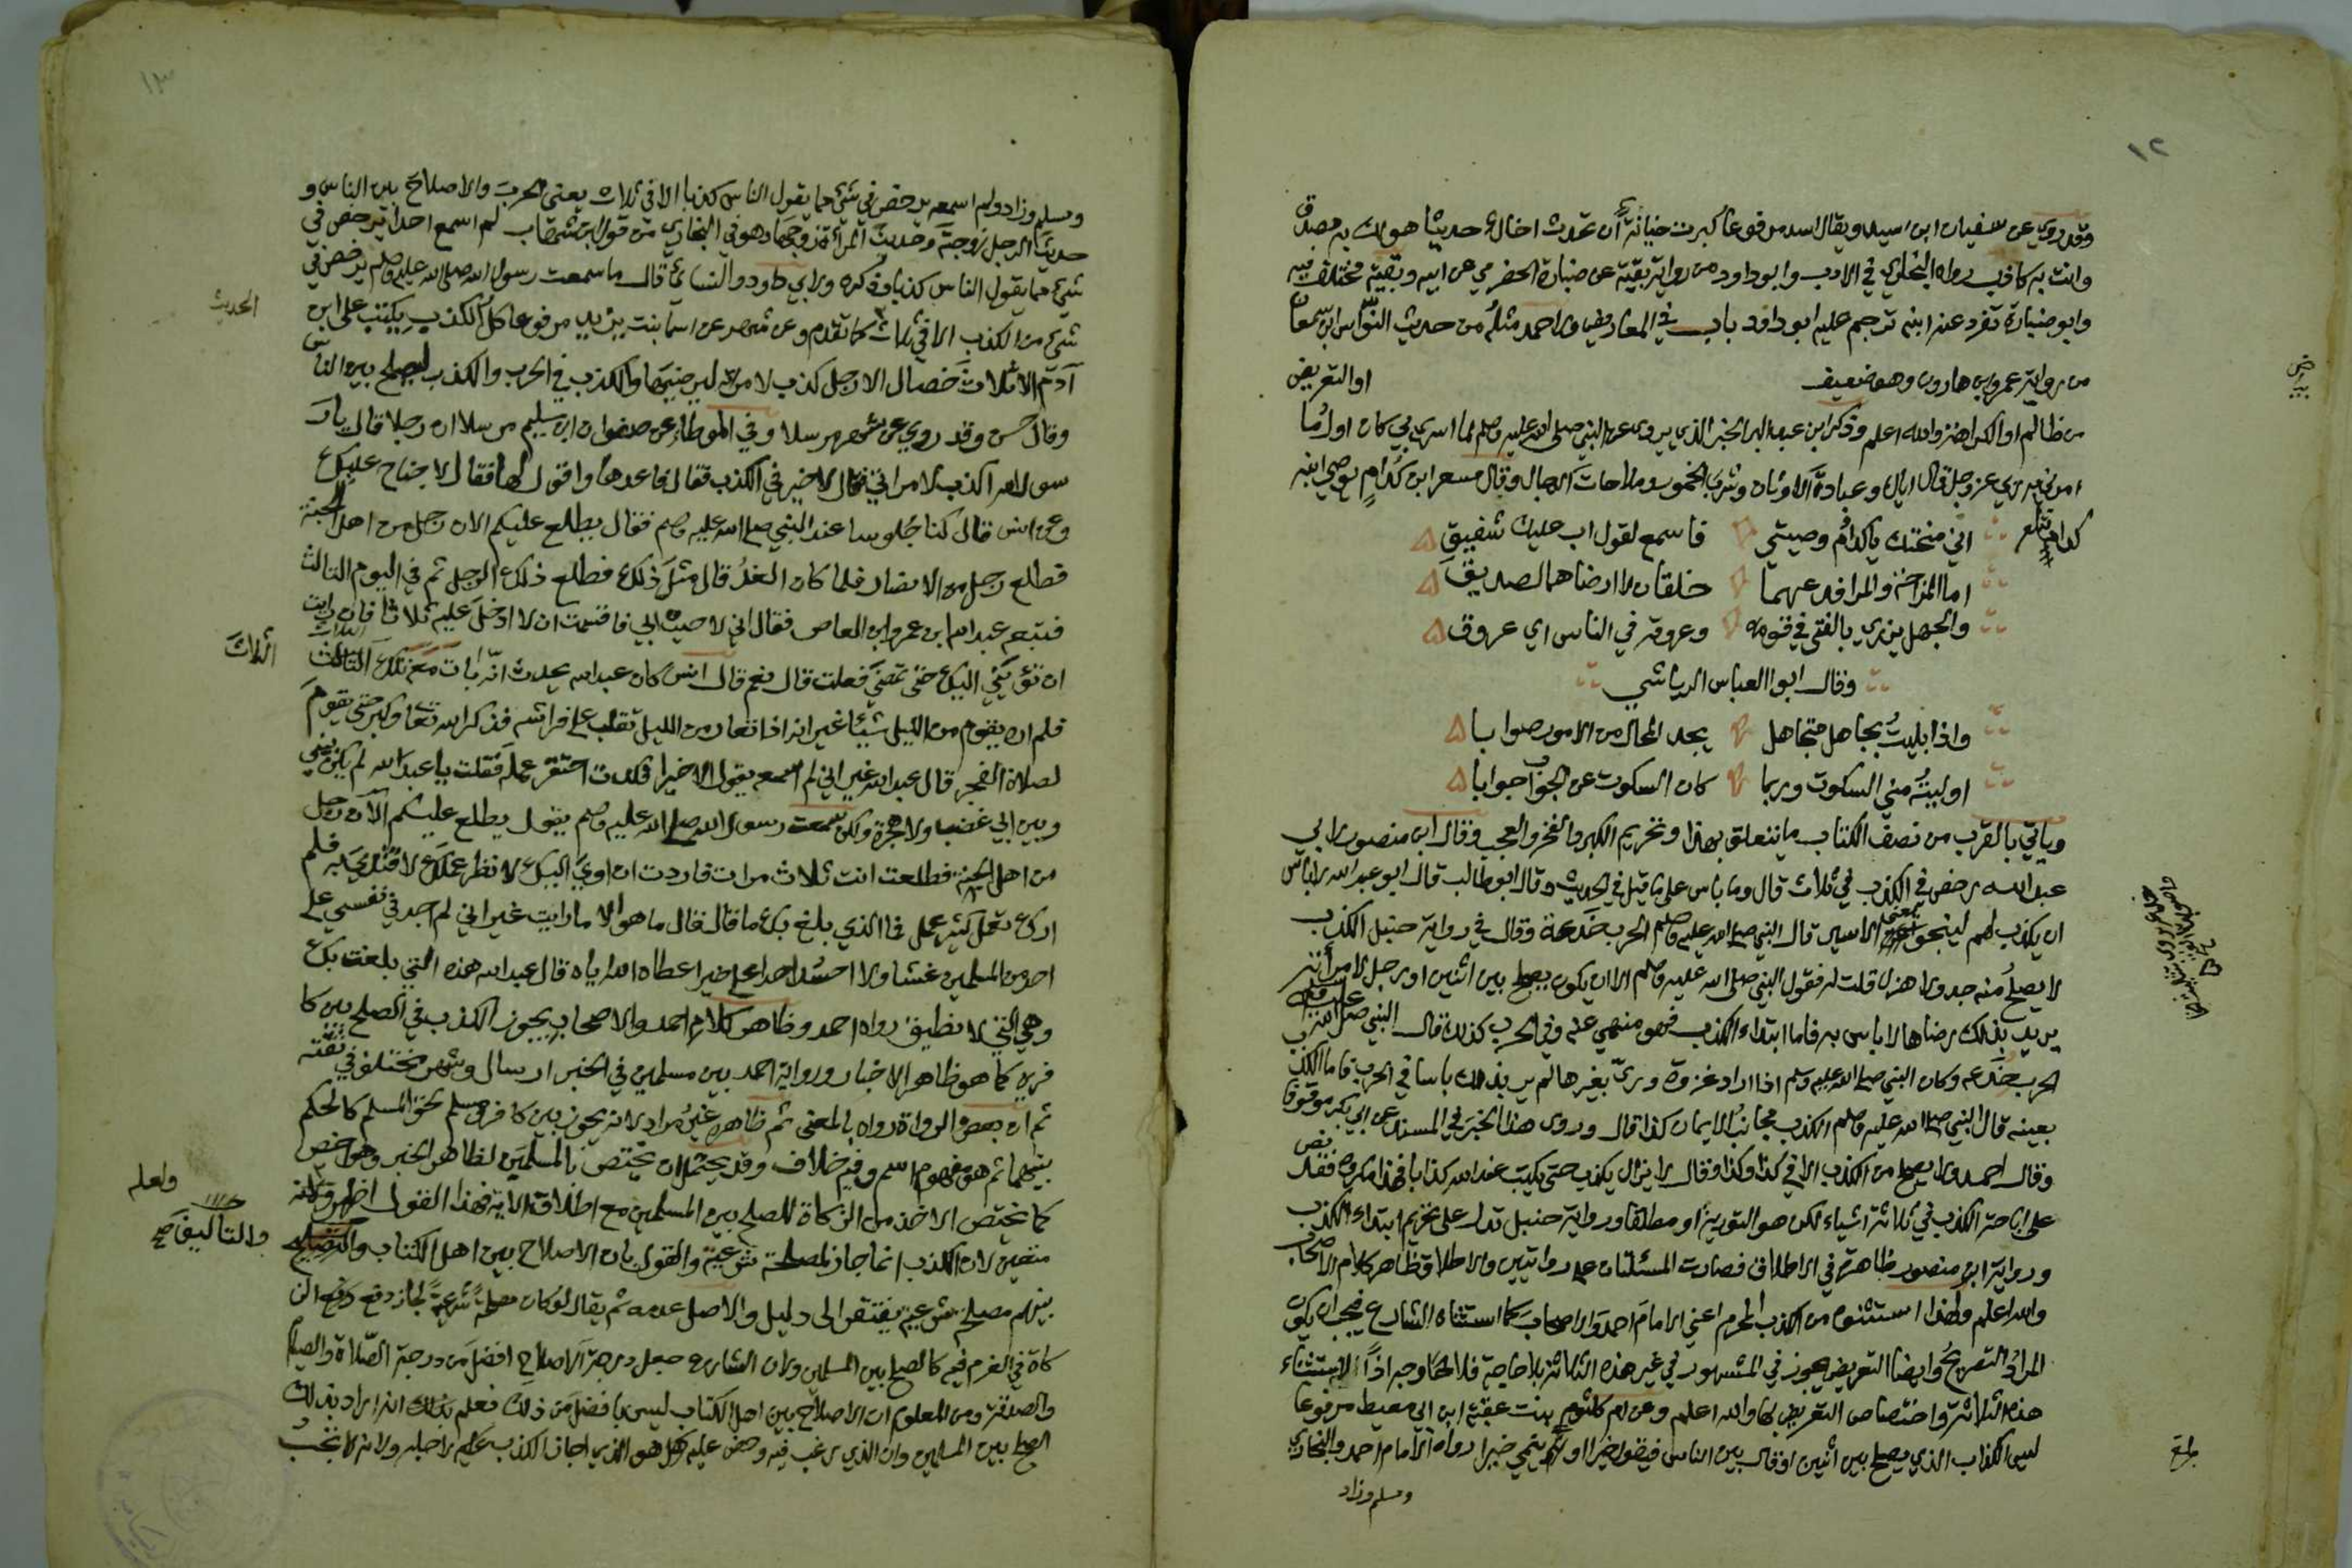 ١٢
وقد روي عن سفيان ابن اسيد ويقال اسد مرفوعا كبرت خيانة أن تحدث اخاك حديثا هو لك به مصدق
وانت به كاذب رواه البخاري في الادب وابو داود من رواية بقية عن ضبارة الحضرمي عن ابيه وبقية مختلف فيه
وابو ضبارة تفرد عنه ابنه ترجم عليه ابو داود باب في المعاريض ولاحمد مثله من حديث النواس ابن سمعان
من رواية عمر وابن هارون وهو ضعيف او التعريض
من ظالم او الكراهة والله اعلم وذكر ابن عبد البر الخبر الذي يروى عن النبي صلى الله عليه وسلم لما اسري بي كان اول ما
امرني به ربي عز وجل قال اياك وعبادة الاوثان وشرب الخمور وملاحات الرجال وقال مسعر ابن كدام يوصي ابنه
كداما
اني منحتك يا كدام وصيتي فاسمع لقول اب عليك شفيق
اما المزاحة والمراء فدعهما خلقان لا ارضاهما لصديق
والجهل يزري بالفتى في قومه وعروقه في الناس اي عروق
وقال ابوا العباس الرياشي
واذا بليت بجاهل متجاهل يجد المحال من الامور صوابا
اوليته مني السكوت وربما كان السكوت عن الجواب جوابا
وياتي بالقرب من نصف الكتاب ما يتعلق بهذا وتحريم الكبر والفخر والعجب وقال ابن منصور لابي
عبد الله رخص في الكذب في ثلاث قال وما باس على ما قيل في الحديث وقال ابو طالب قال ابو عبد الله لا باس
ان يكذب لهم لينجو الاسير قال النبي صلى الله عليه وسلم الحرب خدعة وقال في رواية حنبل الكذب
لا يصلح منه جد ولا هزل قلت له فقول النبي صلى الله عليه وسلم الا ان يكون يصلح بين اثنين او رجل لامرأته
يريد بذلك رضاها لا باس به فاما ابتداء الكذب فهو منهي عنه وفي الحرب كذلك قال النبي صلى الله عليه وسلم
الحرب خدعه وكان النبي صلى الله عليه وسلم اذا اراد غزوة ورى بغيرها لم ير بذلك باسا في الحرب فاما الكذب
بعينه قال النبي صلى الله عليه وسلم الكذب مجانب الايمان كذا قال وروى هذا الخبر في المسند عن ابي بكر موقوفا
وقال احمد ولا يصلح من الكذب الا في كذا وكذا وقال لا يزال يكذب حتى يكتب عند الله كذابا فهذا مكروه فقد نص
على اباحة الكذب في ثلاثة اشياء لكن هو التورية او مطلقا ورواية حنبل تدل على تحريم ابتداء الكذب
ورواية ابن منصور ظاهرة في الاطلاق فصارت المسئلتان على روايتين والاطلاق ظاهر كلام الاصحاب
والله اعلم ولهذا استثنوه من الكذب المحرم اعني الامام احمد والاصحاب كما استثناه الشارع فيجب ان يكون
المراد التصريح وايضا التعريض يجوز في المشهور في غير هذه الثلاثة بلا حاجة فلا وجه اذا لاستثناء
هذه الثلاثة واختصاص التعريض بها والله اعلم وعن ام كلثوم بنت عقبة ابن ابي معيط مرفوعا
ليس الكذاب الذي يصلح بين اثنين او قال بين الناس فيقول خيرا او ينمي خيرا رواه الامام احمد والبخاري
ومسلم وزاد
١٣
ومسلم وزاد ولم اسمعه يرخص في شيء مما يقول الناس كذبا الا في ثلاث يعني الحرب والاصلاح بين الناس و
حديث الرجل زوجته وحديث المرأة زوجها وهو في البخاري من قول ابن شهاب لم اسمع احدا يرخص في
شيء مما يقول الناس كذبا وذكره ولابي داود والنسائي قال ما سمعت رسول الله صلى الله عليه وسلم يرخص في
شيء من الكذب الا في ثلاث كما تقدم وعن شهر عن اسما بنت يزيد مرفوعا كل الكذب يكتب على ابن
الحديث
آدم الا ثلاث خصال الا رجل كذب لامرأته ليرضيها والكذب في الحرب والكذب ليصلح بين الناس
وقال حسن وقد روي عن شهر مرسلا وفي الموطا عن صفوان ابن سليم مرسلا ان رجلا قال يا ر
سول الله اكذب لامراتي فقال لا خير في الكذب فقال فاعدها واقول لها فقال لا جناح عليك
وعن انس قال كنا جلوسا عند النبي صلى الله عليه وسلم فقال يطلع عليكم الان رجل من اهل الجنة
فطلع رجل من الانصار فلما كان الغد قال مثل ذلك فطلع ذلك الرجل ثم في اليوم الثالث
فتبعه عبد الله ابن عمرو ابن العاص فقال اني لاحيت ابي فاقسمت ان لا ادخل عليه ثلاثا فان رايت
ان تؤويني اليك حتى تمضي فعلت قال نعم قال انس كان عبد الله يحدث انه بات معه تلك الثالث
الثلاث
فلم اره يقوم من الليل شيئا غير انه اذا تعار من الليل تقلب على فراشه فذكر الله تعالى وكبر حتى يقوم
لصلاة الفجر قال عبد الله غير اني لم اسمعه يقول الا خيرا فكدت احتقر عمله فقلت يا عبد الله لم يكن بيني
وبين ابي غضب ولا هجرة ولكن سمعت رسول الله صلى الله عليه وسلم يقول يطلع عليكم الآن رجل
من اهل الجنة فطلعت انت ثلاث مرات فاردت ان اوي اليك لانظر عملك لاقتدي به فلم
ارك تعمل كثير عمل فما الذي بلغ بك ما قال فقال ما هو الا ما رايت غير اني لم اجد في نفسي على
احد من المسلمين غشا ولا احسد احدا على خير اعطاه الله اياه قال عبد الله هذه التي بلغت بك
وهي التي لا نطيق رواه احمد وظاهر كلام احمد والاصحاب يجوز الكذب في الصلح بين كا
فرين كما هو ظاهر الاخبار ورواية احمد بين مسلمين في الخبر ارسال وشهر مختلف في ثقته
ثم ان بعض الرواة رواه بالمعنى ثم ظاهره غير مراد لانه يجوز بين كافر ومسلم لحق المسلم كالحكم
بينهما ثم هو مفهوم اسم وفيه خلاف وقد يحتمل ان يختص بالمسلمين لظاهر الخبر وهو اخص
كما يختص الاخذ من الزكاة للصلح بين المسلمين مع اطلاق الاية فهذا القول اظهر
ولعله
متعين لان الكذب انما جاز لمصلحة شرعية والقول بان الاصلاح بين اهل الكتاب
والتاليف صح
بينهم مصلحة شرعية يفتقر الى دليل والاصل عدمه ثم يقال لو كان مصلحة شرعية لجاز دفع الز
كاة في الغرم فيه كالصلح بين المسلمين ولان الشارع جعل درجة الاصلاح افضل من درجة الصلاة والصيام
والصدقة ومن المعلوم ان الاصلاح بين اهل الكتاب ليس بافضل من ذلك فعلم بذلك انه اراد بذلك
الصلح بين المسلمين وان الذي رغب فيه وحض عليه هو الذي اجاز الكذب لاجله ولانه لا تجب